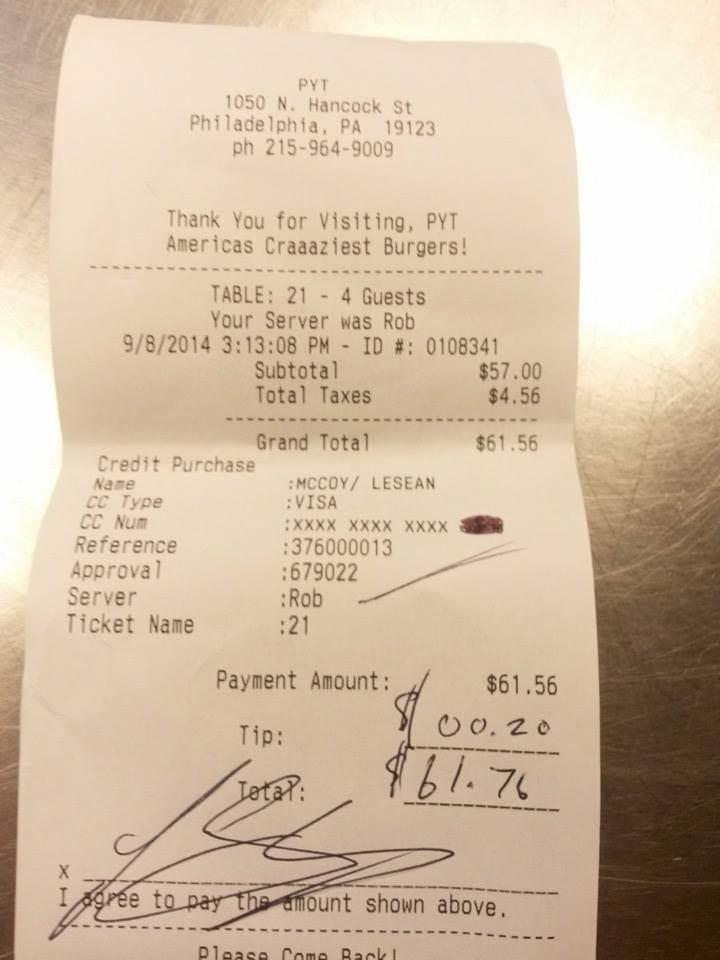 PYT
1050 N. Hancock St
Philadelphia, PA 19123
ph 215-964-9009
Thank You for Visiting, PYT
Americas Craaaziest Burgers!
TABLE: 21 - 4 Guests
Your Server was Rob
9/8/2014 3:13:08 PM - ID #: 0108341
Subtotal $57.00
Total Taxes $4.56
Grand Total $61.56
Credit Purchase
Name :MCCOY/ LESEAN
CC Type :VISA
CC Num :XXXX XXXX XXXX
Reference :376000013
Approval :679022
Server :Rob
Ticket Name :21
Payment Amount: $61.56
Tip: $ 00.20
Total: $61.76
X
I agree to pay the amount shown above.
Please Come Back!